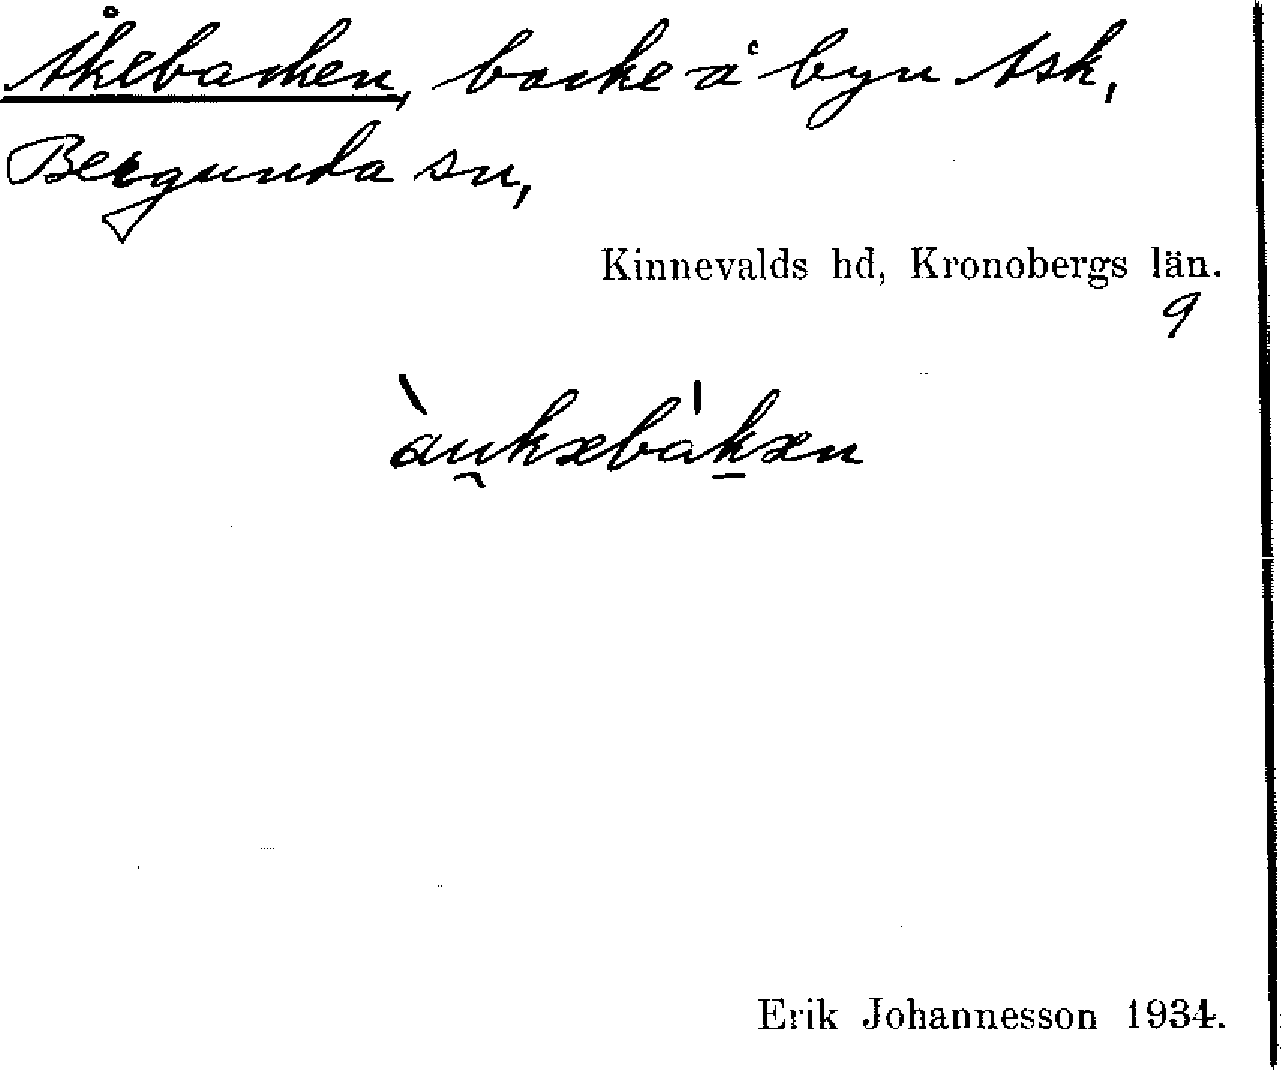 Åkebacken, backe å byn Ask,
Bergunda sn,
Kinnevalds hd, Kronobergs län.
9
àu̯kæbak̠æn
Erik Johannesson 1934.